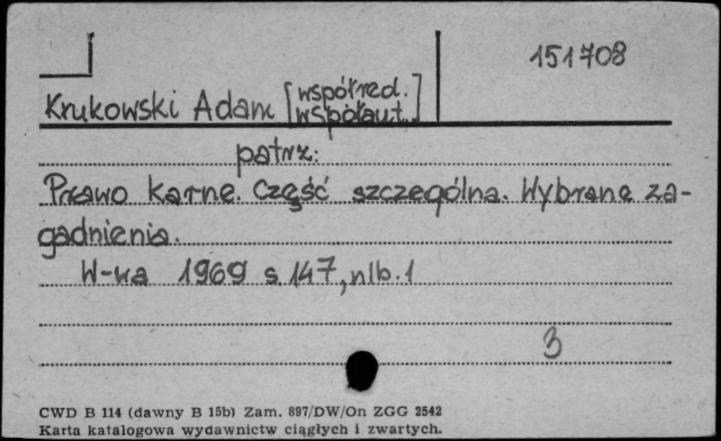 151708
Krukowski Adam [współred.
współaut.]
patrz:
Prawo karne. Część szczególna. Wybrane za-
gadnienia.
W-wa 1969 s. 147, nlb. 1
3
CWD B 114 (dawny B 15b) Zam. 897/DW/On ZGG 2542
Karta katalogowa wydawnictw ciągłych i zwartych.